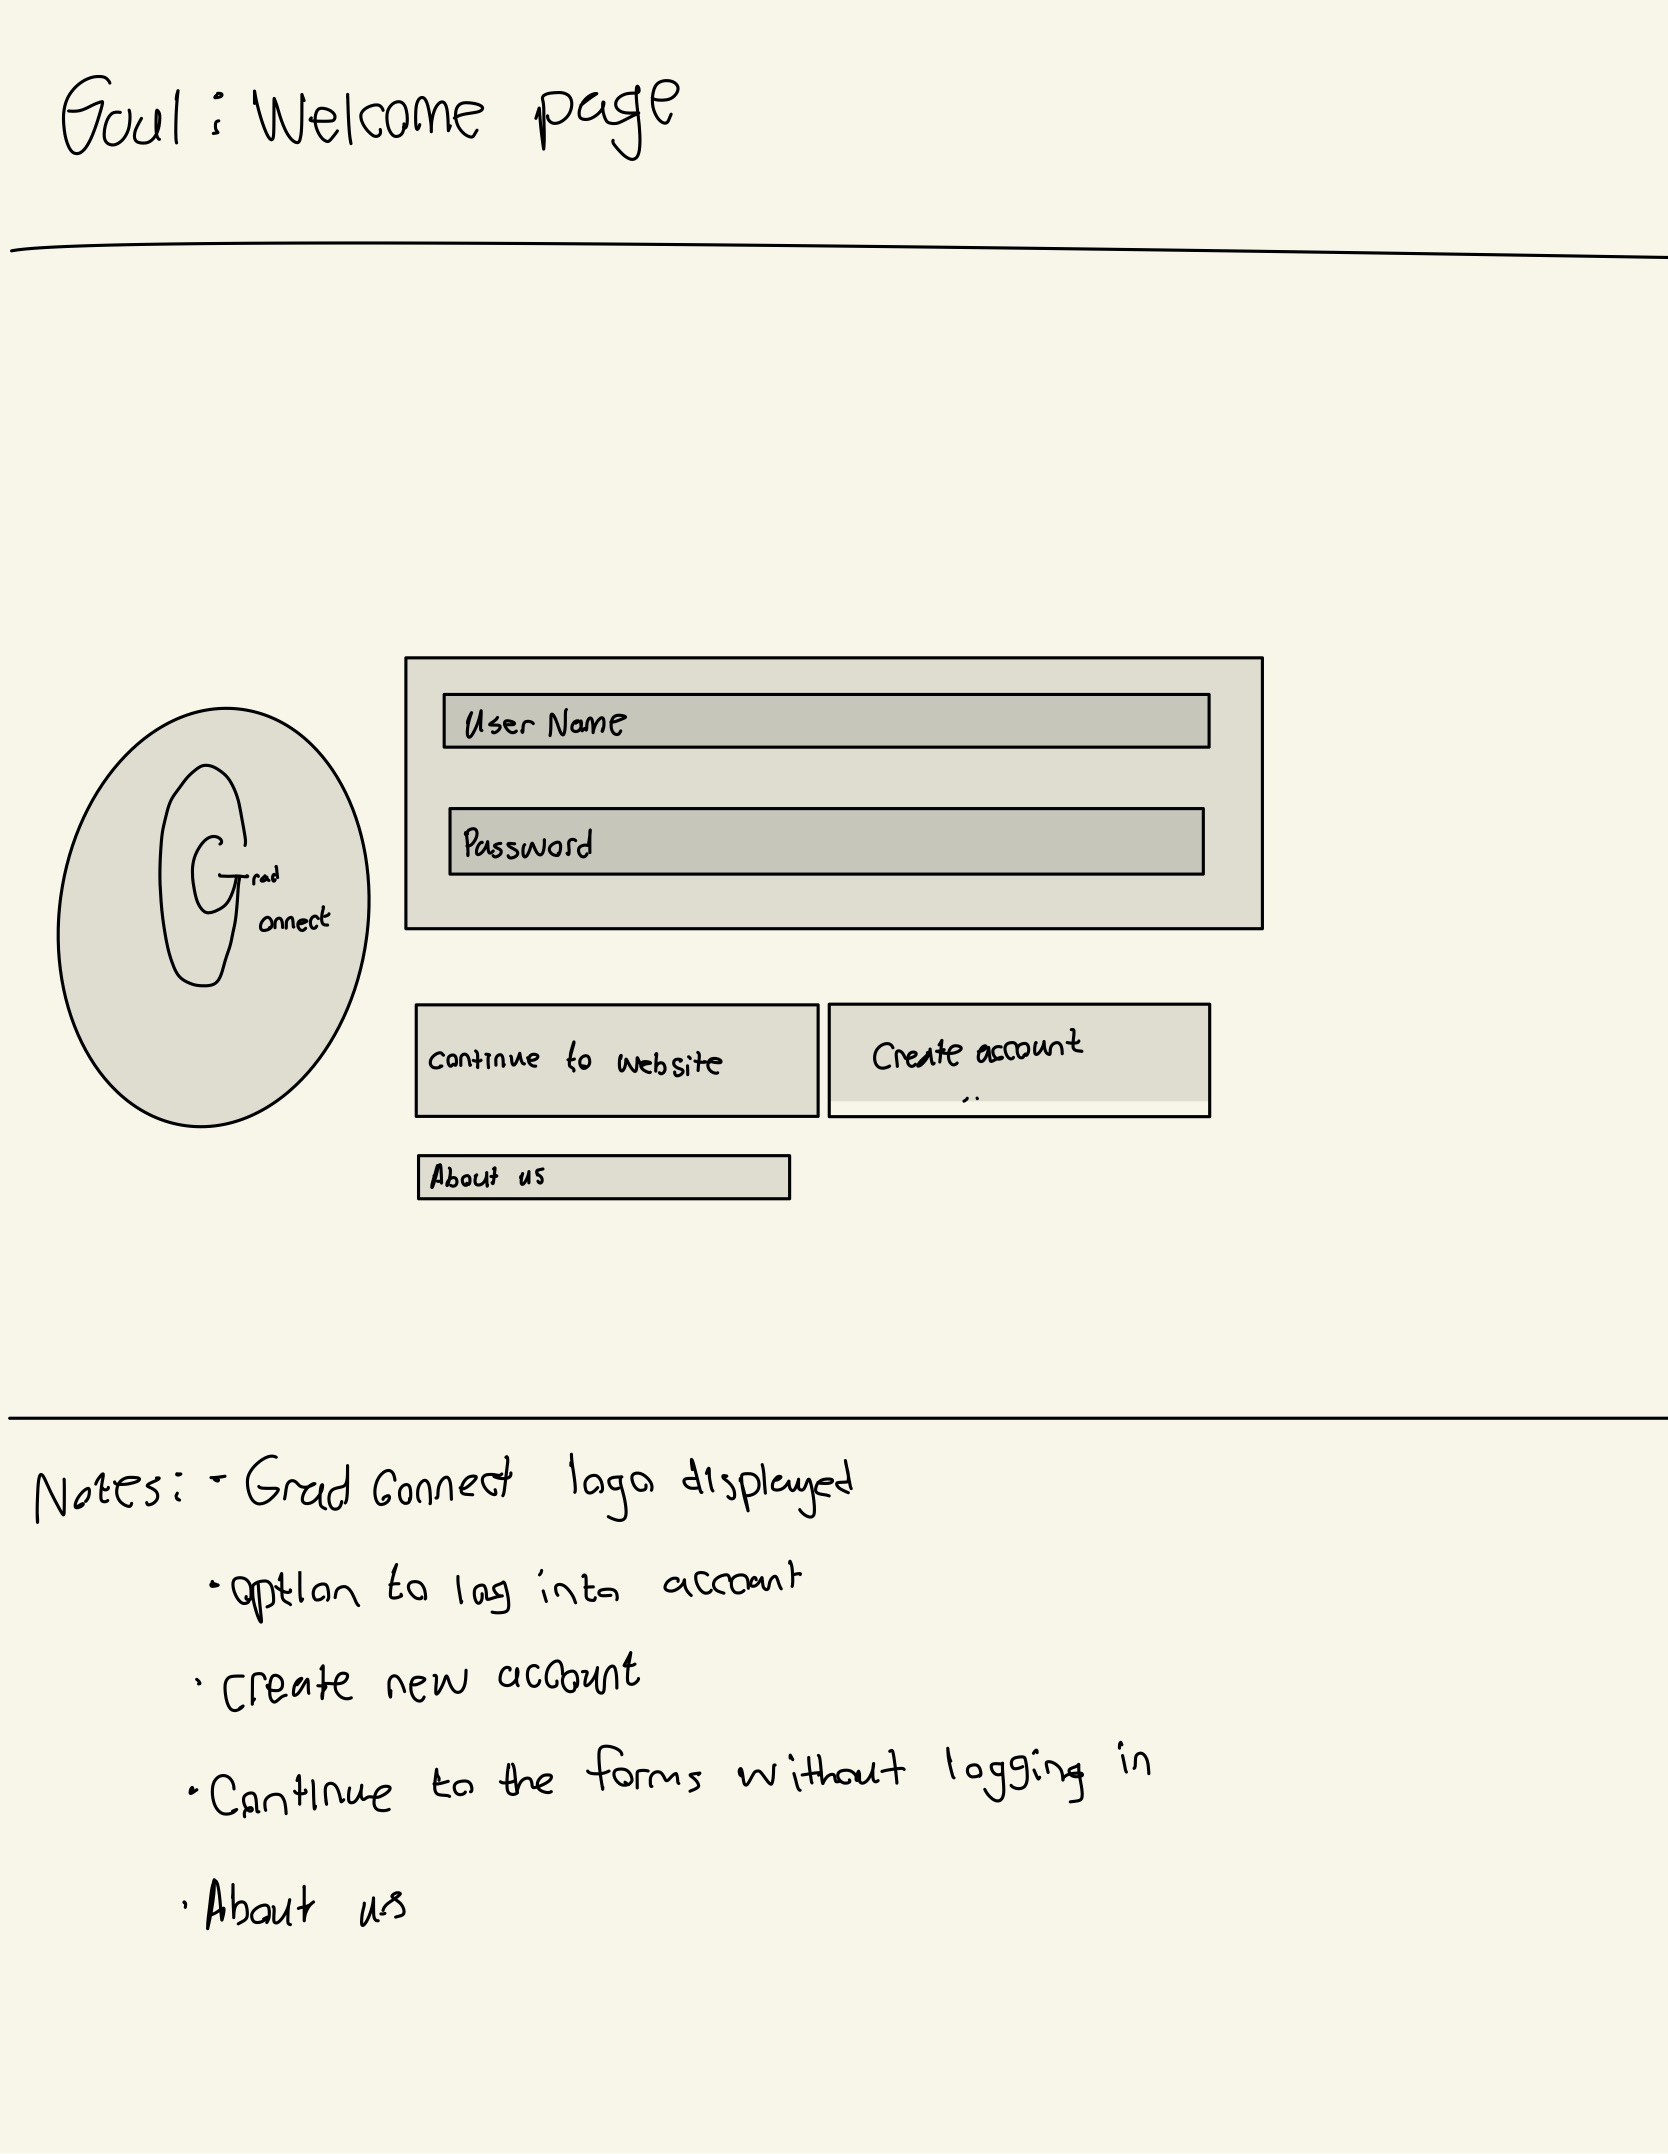 Goal: Welcome page
User Name
Password
Grad
onnect
continue to website
Create account
About us
Notes: - Grad Connect logo displayed
· option to log into account
· create new account
· Continue to the forms without logging in
· About us